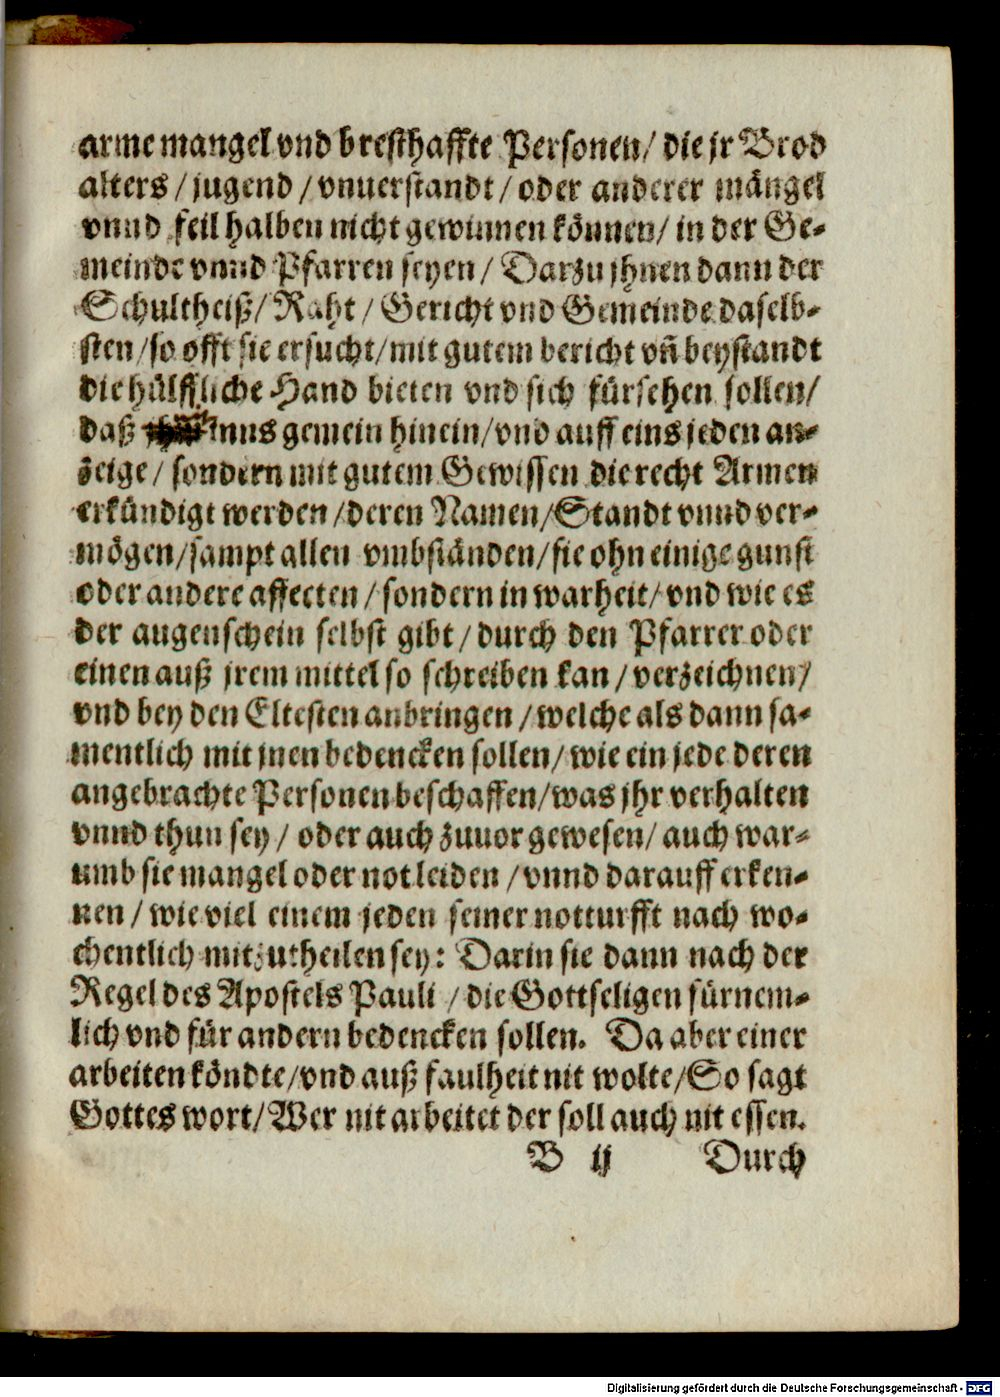 arme mangel vnd bresthaffte Personen/ die jr Brod
alters / jugend / vnuerstandt / oder anderer mängel
vnnd feil halben nicht gewinnen können/ in der Ge-
meinde vnnd Pfarren seyen / Darzu jhnen dann der
Schultheiß/ Raht / Gericht vnd Gemeinde daselb-
sten /so offt sie ersucht/mit gutem bericht vñ beystandt
die hülffliche Hand bieten vnd sich fürsehen sollen/
daß inns gemein hinein/vnd auff eins jeden an-
zeige / sondern mit gutem Gewissen die recht Armen
erkündigt werden /deren Namen/Standt vnnd ver-
mögen/sampt allen vmbständen/sie ohn einige gunst
oder andere affecten / sondern in warheit/ vnd wie es
der augenschein selbst gibt / durch den Pfarrer oder
einen auß jrem mittel so schreiben kan / verzeichnen/
vnd bey den Eltesten anbringen /welche als dann sa-
mentlich mit jnen bedencken sollen/ wie ein jede deren
angebrachte Personen beschaffen/was jhr verhalten
vnnd thun sey / oder auch zuuor gewesen/ auch war-
umb sie mangel oder not leiden /vnnd darauff erken-
nen / wie viel einem jeden seiner notturfft nach wo-
chentlich mitzutheilen sey: Darin sie dann nach der
Regel des Apostels Pauli / die Gottseligen fürnem-
lich vnd für andern bedencken sollen. Da aber einer
arbeiten köndte/vnd auß faulheit nit wolte/So sagt
Gottes wort/Wer nit arbeitet der soll auch nit essen.
B ij Durch
Digitalisierung gefördert durch die Deutsche Forschungsgemeinschaft - DFG